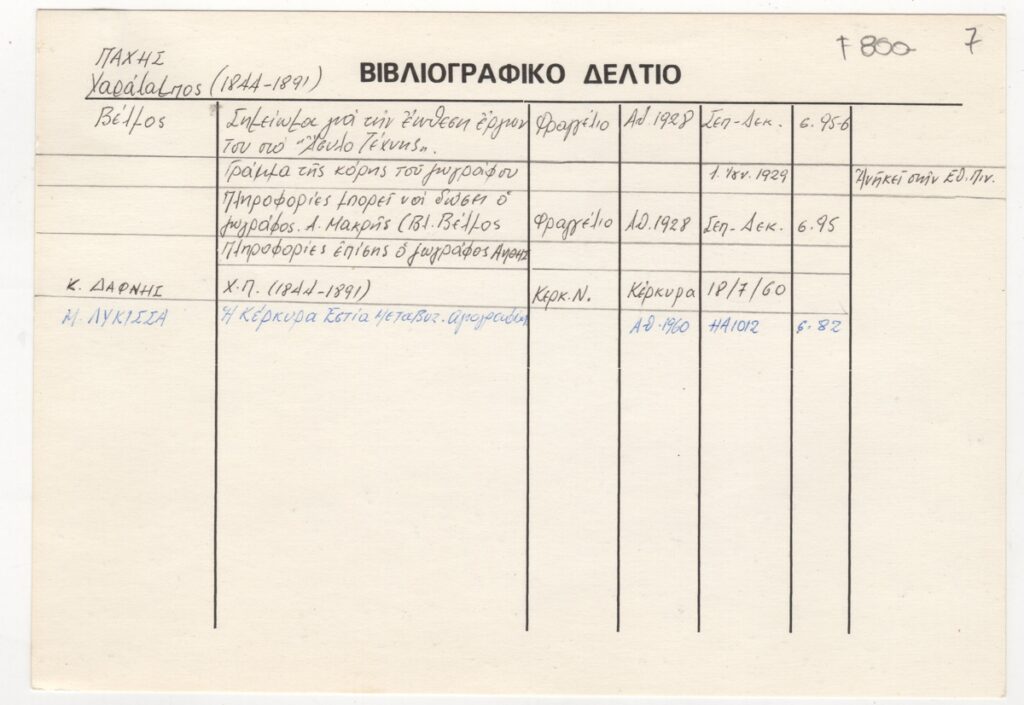 † 800 7
ΠΑΧΗΣ
Χαράλαμπος (1844-1891) ΒΙΒΛΙΟΓΡΑΦΙΚΟ ΔΕΛΤΙΟ
Βέλμος Σημείωμα γιά τήν ἔκθεση ἔργων Φραγγέλιο Αθ. 1928 Σεπ-Δεκ. σ. 95-6
του στό "Ἄσυλο Τέχνης".
Γράμμα τῆς κόρης τοῦ ζωγράφου 1. Ἰαν. 1929 Ἀνήκει στήν Εθ. Πιν.
Πληροφορίες μπορεῖ νά δώσει ὁ
ζωγράφος. Α. Μακρῆς (Βλ. Βέλμος Φραγγέλιο Αθ. 1928 Σεπ-Δεκ. σ. 95
Πληροφορίες ἐπίσης ὁ ζωγράφος
Κ. ΔΑΦΝΗΣ Χ.Π. (1844-1891) Κερκ. Ν. Κέρκυρα 18/7/60
Μ. ΛΥΚΙΣΣΑ Ἡ Κέρκυρα Εστία Μεταβυζ. Αθ. 1960 ΗΑ1012 σ. 82